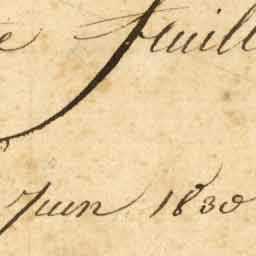 e Feuill
Juin 1830